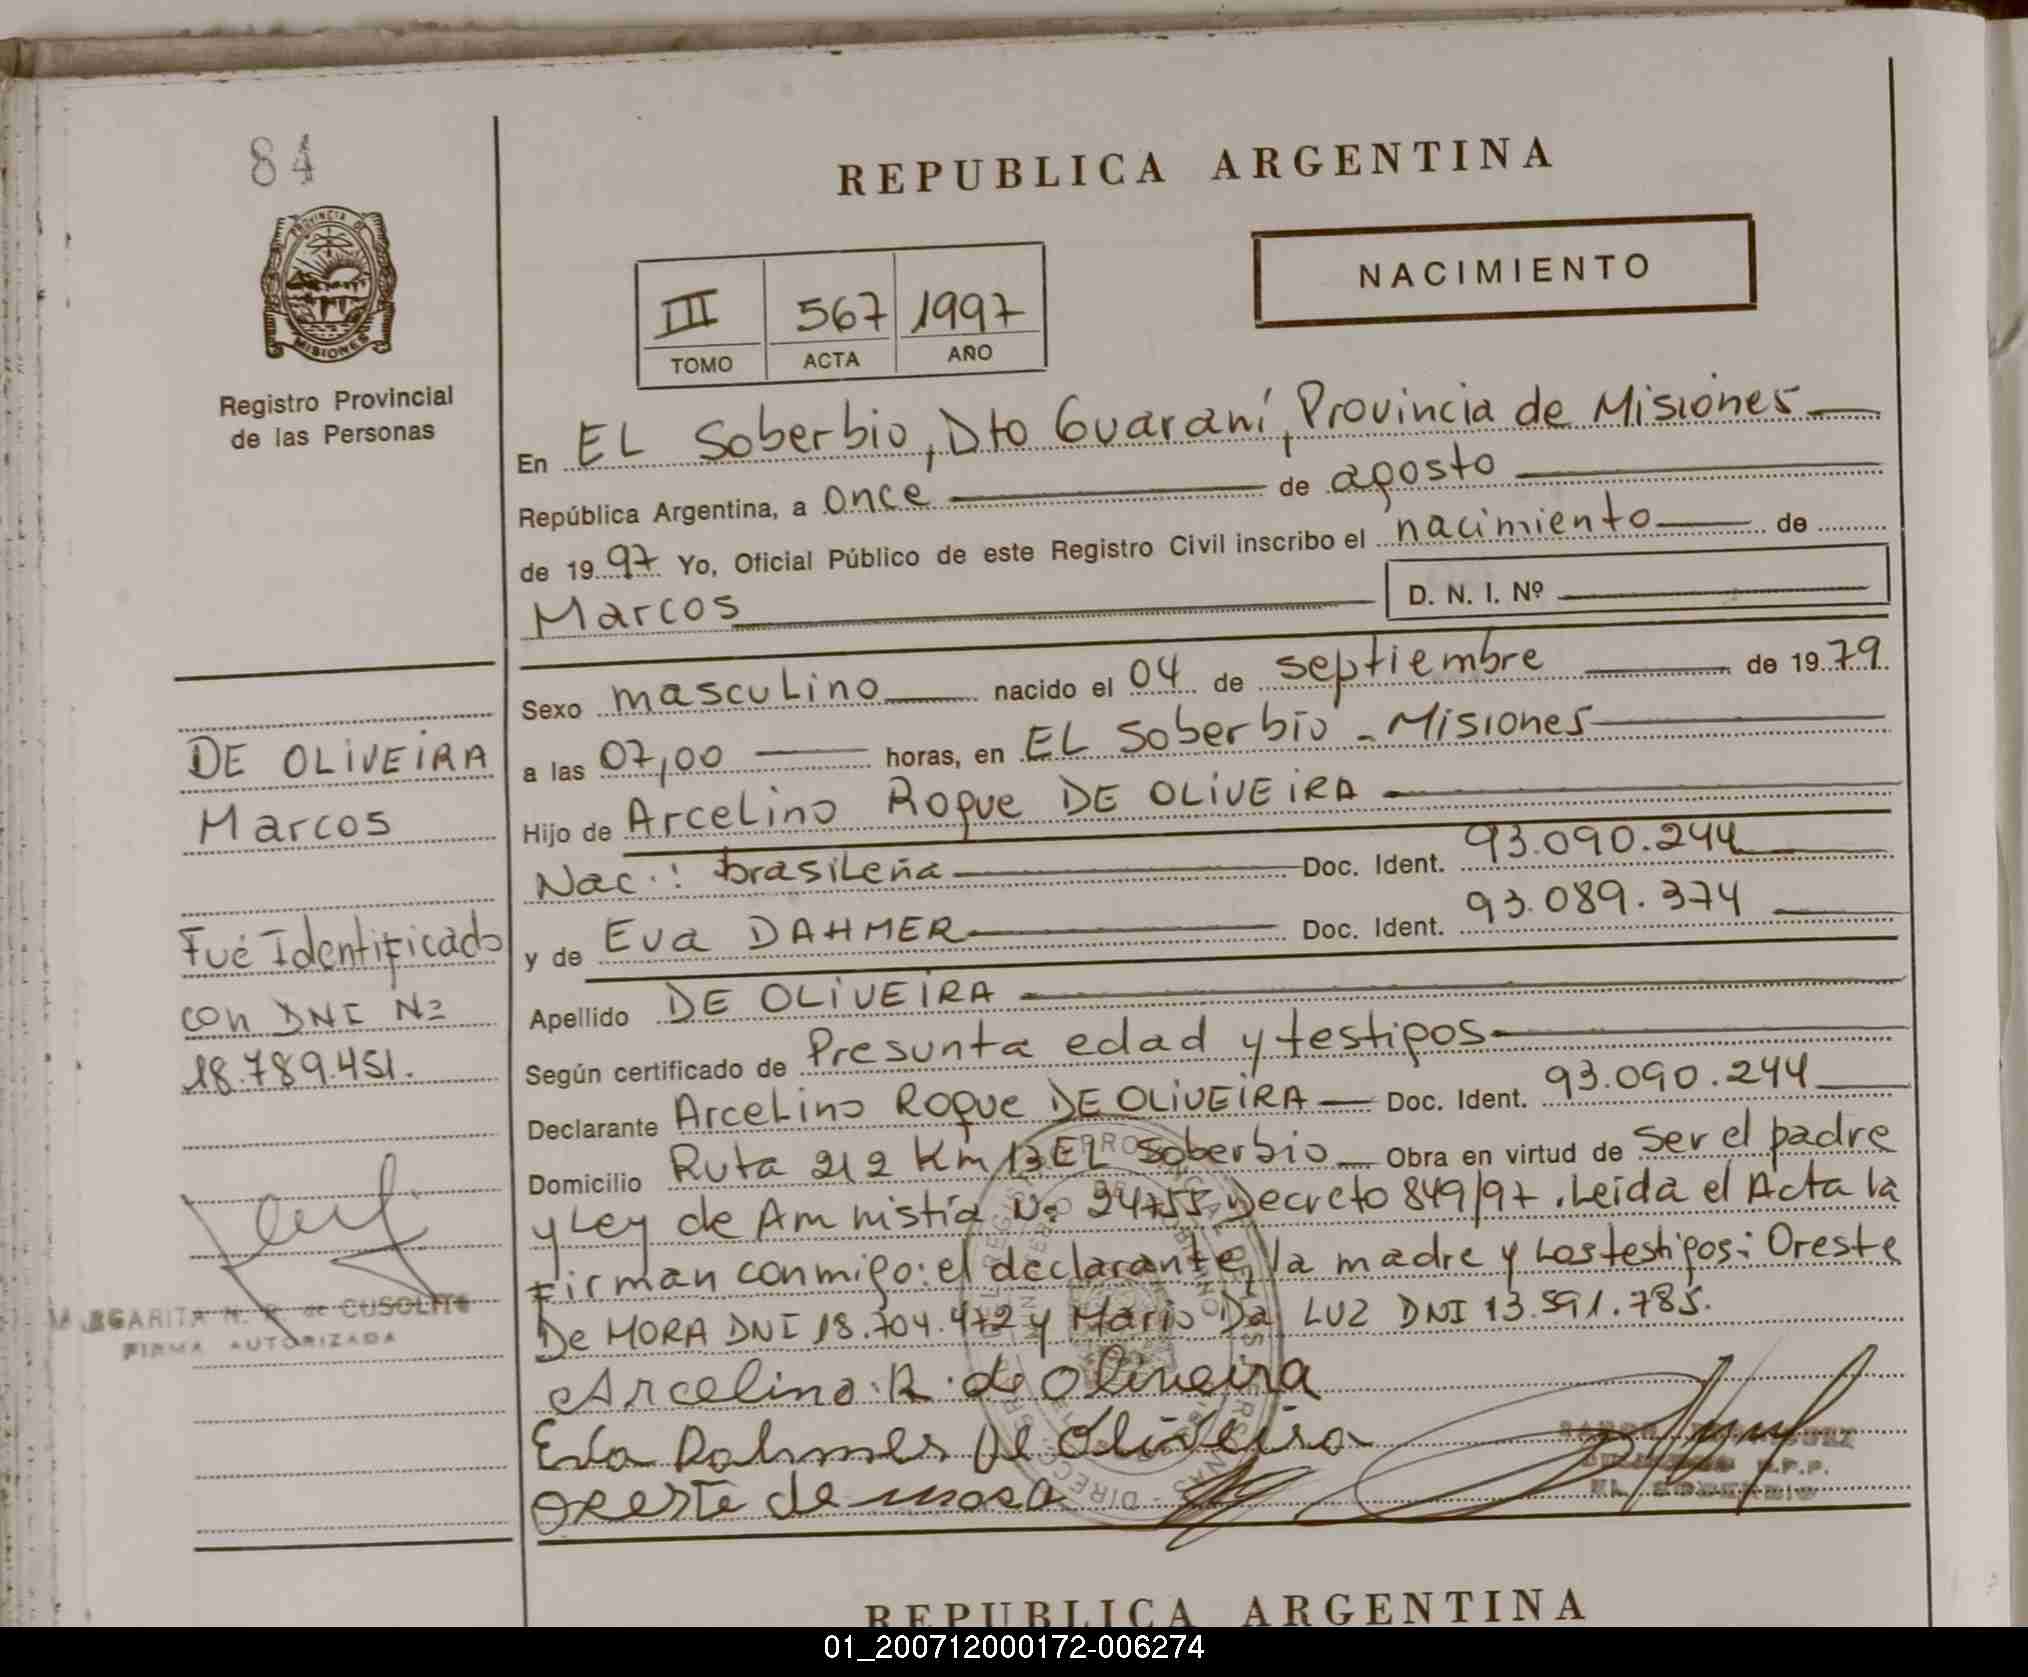 84
PROVINCIA DE
MISIONES
Registro Provincial
de las Personas
REPUBLICA ARGENTINA
NACIMIENTO
III 567 1997
TOMO ACTA AÑO
En EL Soberbio, Dto Guaraní, Provincia de Misiones
República Argentina, a once de agosto
de 1997 Yo, Oficial Público de este Registro Civil inscribo el nacimiento de
Marcos D. N. I. Nº
Sexo masculino nacido el 04 de septiembre de 1979.
a las 07,00 horas, en EL Soberbio - Misiones
Hijo de Arcelino Roque DE OLIVEIRA
Nac.: brasileña Doc. Ident. 93.090.244
y de Eva DAHMER Doc. Ident. 93.089.374
Apellido DE OLIVEIRA
Según certificado de Presunta edad y testigos
Declarante Arcelino Roque DE OLIVEIRA Doc. Ident. 93.090.244
Domicilio Ruta 212 Km 13 EL Soberbio Obra en virtud de Ser el padre
y Ley de Amnistía Nº 24755 Decreto 849/97. Leída el Acta la
Firman conmigo: el declarante, la madre y los testigos: Oreste
De MORA DNI 18.704.472 y Mario Da LUZ DNI 13.591.785.
Arcelino. R. de Oliveira
Eva Dahmer De Oliveira
oreste de mora
EL SOBERBIO
DE OLIVEIRA
Marcos
Fué Identificado
con DNI Nº
18.789.451.
MARGARITA N. R. de CUSOLITO
FIRMA AUTORIZADA
REPUBLICA ARGENTINA
01_200712000172-006274